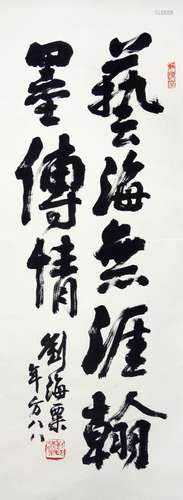 藝海無涯翰
墨傳情
劉海粟
年方八八